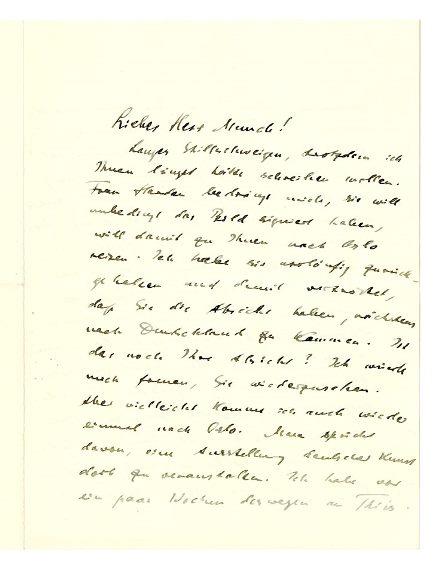 Lieber Herr Munch!
Langes Stillschweigen, trotzdem ich
Ihnen längst hätte schreiben wollen.
Frau bedrängt mich, sie will
unbedingt das Bild signiert haben,
will damit zu Ihnen nach Oslo
reisen. Ich habe sie vorläufig zurück-
gehalten und damit vertröstet,
daß Sie die Absicht haben, nächstens
nach Deutschland zu kommen. Ist
das noch Ihre Absicht? Ich würde
mich freuen, Sie wiederzusehen.
Aber vielleicht komme ich auch wieder
einmal nach Oslo. Man spricht
davon, eine Ausstellung deutscher Kunst
dort zu veranstalten. Ich habe vor
ein paar Wochen deswegen an Thiis